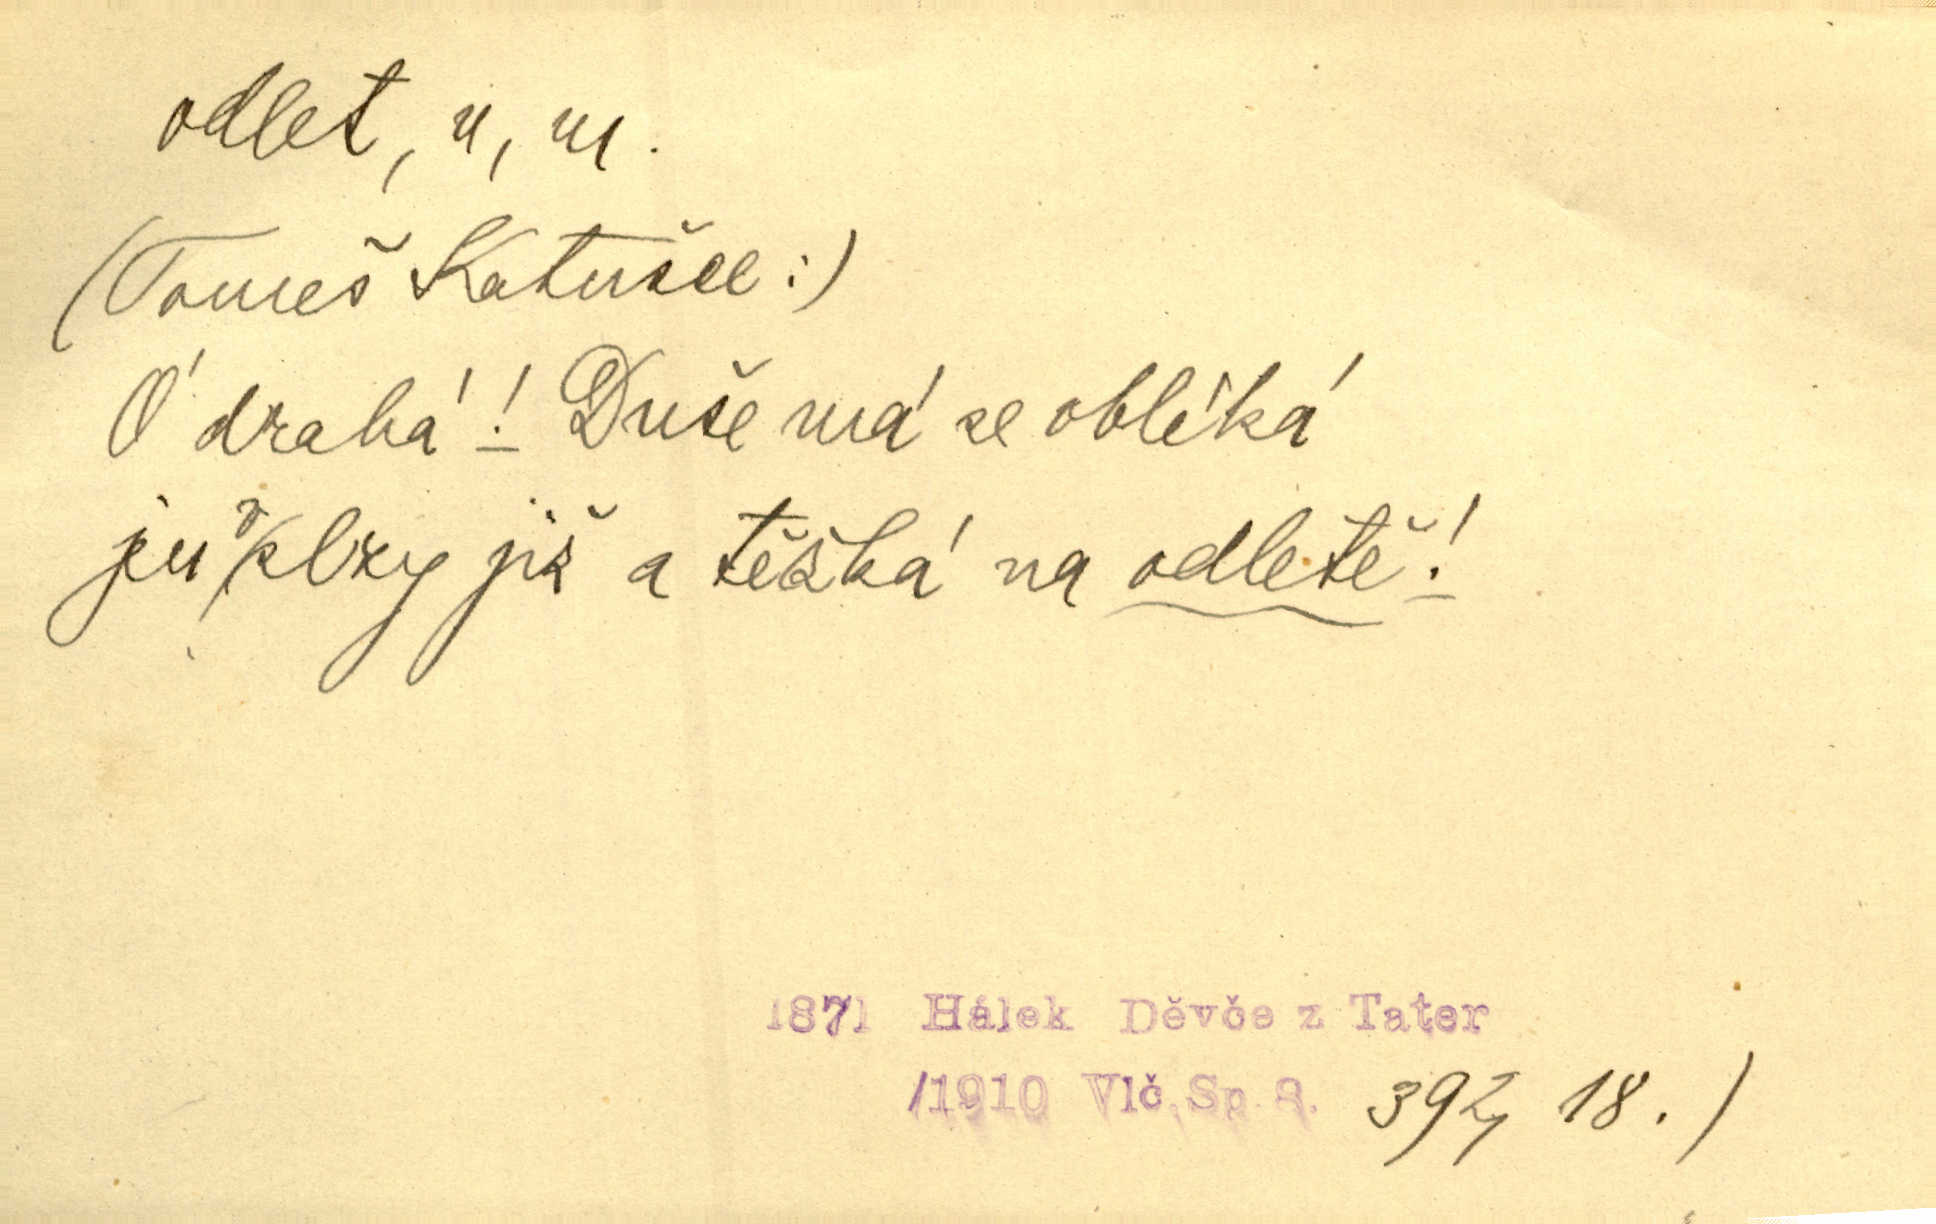 odlet, u, m.
(Tomeš Katušce:)
Ó drahá! Duše má se obléká
jen v slzy již a těžká na odletě!
1871 Hálek Děvče z Tater
/1910 Vlč. Sp. 392, 18.)